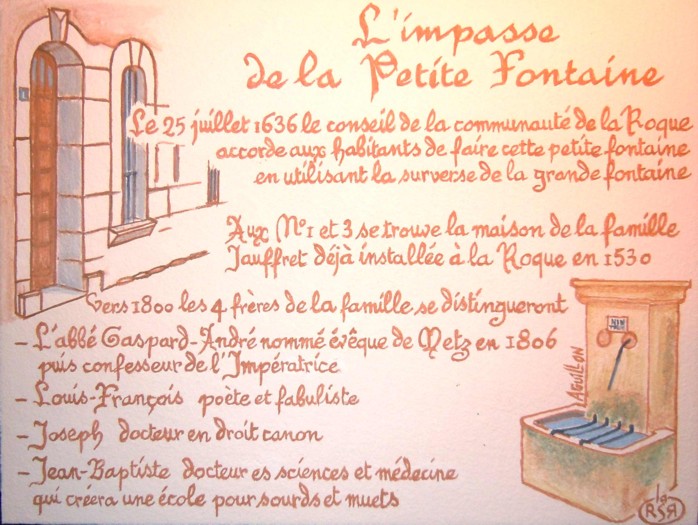 L'impasse
de la Petite Fontaine
Le 25 juillet 1636 le conseil de la communauté de la Roque
accorde aux habitants de faire cette petite fontaine
en utilisant la surverse de la grande fontaine
Aux Nos 1 et 3 se trouve la maison de la famille
Jauffret déjà installée à la Roque en 1530
Vers 1800 les 4 frères de la famille se distingueront
- L'abbé Gaspard-André nommé évêque de Metz en 1806
puis confesseur de l'Impératrice
- Louis-François poète et fabuliste
- Joseph docteur en droit canon
- Jean-Baptiste docteur es sciences et médecine
qui créera une école pour sourds et muets
AGUILLON